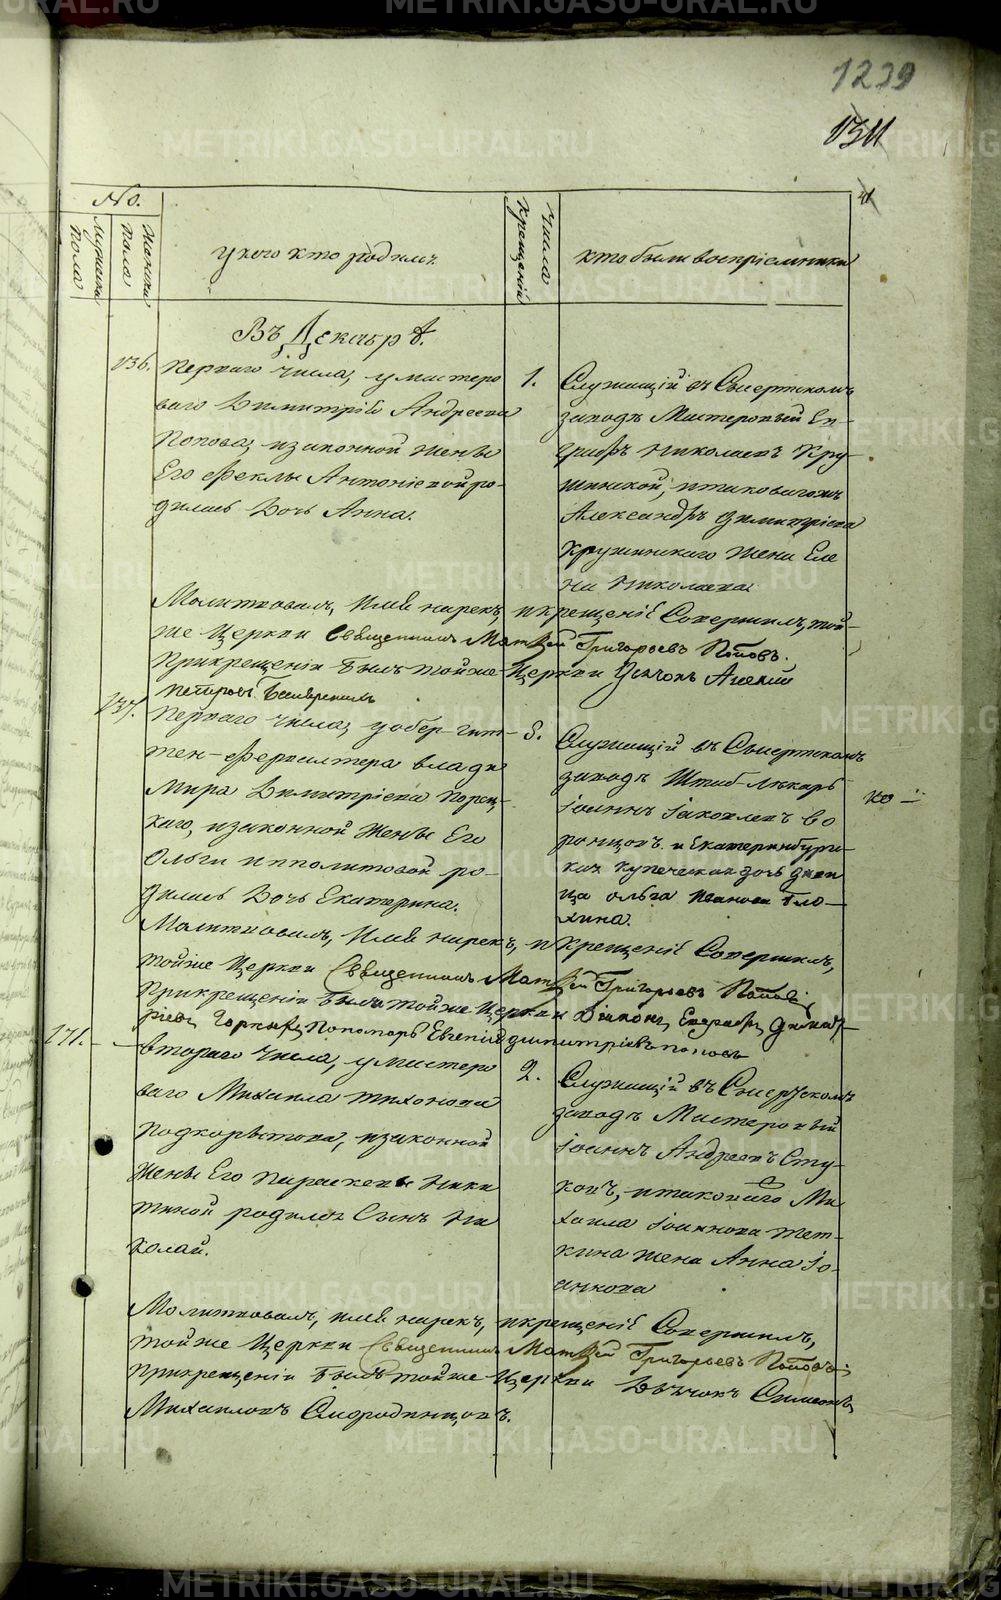 1239
1311
No.
Мужеска пола
Женска пола
у кого кто родился
Числа Крещенiй
кто были воспрiемники
Въ Декабрѣ.
136.
Перваго числа, у мастеро
ваго Димитрiя Андреева
Попова, и законной жены
Его Феклы Антонiевой ро-
дилась Дочь Анна.
1.
Служащiй въ Сысертскомъ
заводѣ Мастеровый Ев-
графъ Николаевъ Кру-
жинской, и таковагожъ
Александра Димитрiева
Кружинскаго жена Еле
на Николаева.
Молитвовалъ, Имя нарекъ, и крещенiе Совершилъ, той-
же Церкви Священникъ Матѳей Григорьевъ Поповъ.
При крещенiи былъ той же Церкви Дьячокъ Алексiй
Петровъ
137.
Перваго числа, у обер-гит-
тен-фервалтера Влади
мира Димитрiева Порец-
каго, и законной жены Его
Ольги Ипполитовой ро-
дилась Дочь Екатерина.
8.
Служащiй въ Сысертскомъ
заводѣ Штаб-лѣкарь
Iоаннъ Iаковлевъ Во
ронцовъ. и Екатеринбург-
ская купеческая дочь деви
ца Ольга Иванова Бло-
хина.
Молитвовалъ, Имя нарекъ, и Крещенiе Совершилъ,
той же Церкви Священникъ Матѳей Григорьевъ Поповъ;
При крещенiи были той же Церкви Дiаконъ Евграфъ Димит-
рiевъ Горныхъ, Пономарь Евгенiй Димитрiевъ Поповъ
171.
Втораго числа, у мастеро
ваго Михаила Тихонова
Подкорытова, и законной
жены Его Параскевы Ники
тиной родился Сынъ Ни
колай.
2.
Служащiй въ Сысертскомъ
заводѣ Мастеровый
Iоаннъ Андреевъ Сту-
ковъ, и таковаго Ми
хаила Iоаннова Тет-
кина жена Анна Iо-
аннова
Молитвовалъ, имя нарекъ, и крещенiе Совершилъ,
той же Церкви Священникъ Матѳей Григорьевъ Поповъ;
При крещенiи былъ той же Церкви Дьячокъ Симеонъ
Михаиловъ Смородинцовъ.
METRIKI.GASO-URAL.RU